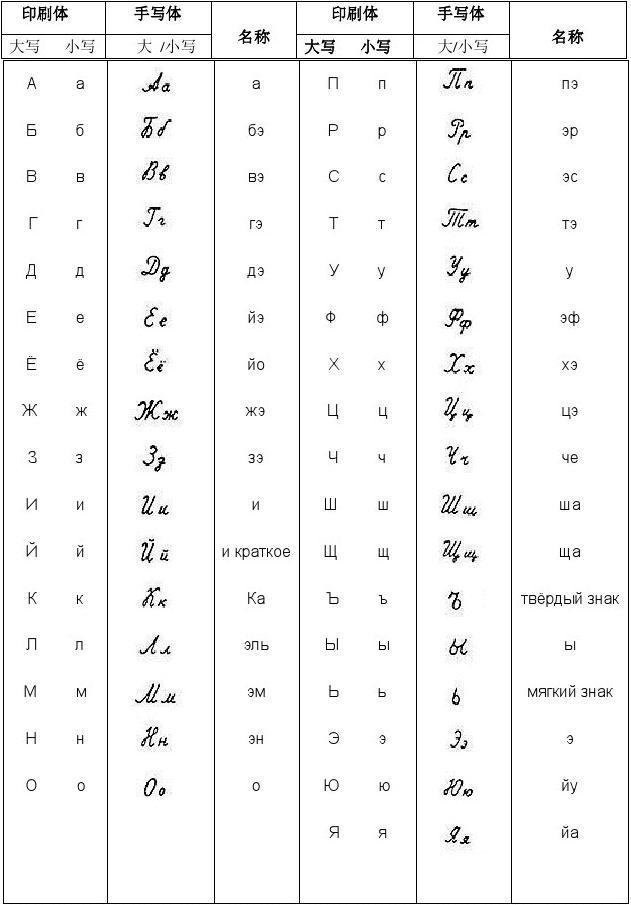 印刷体 手写体 名称 印刷体 手写体 名称
大写 小写 大 /小写 大写 小写 大/小写
А а Аа а П п Пп пэ
Б б Бб бэ Р р Рр эр
В в Вв вэ С с Сс эс
Г г Гг гэ Т т Тт тэ
Д д Дд дэ У у Уу у
Е е Ее йэ Ф ф Фф эф
Ё ё Ёё йо Х х Хх хэ
Ж ж Жж жэ Ц ц Цц цэ
З з Зз зэ Ч ч Чч че
И и Ии и Ш ш Шш ша
Й й Йй и краткое Щ щ Щщ ща
К к Кк Ка Ъ ъ ъ твёрдый знак
Л л Лл эль Ы ы ы ы
М м Мм эм Ь ь ь мягкий знак
Н н Нн эн Э э Ээ э
О о Оо о Ю ю Юю йу
Я я Яя йа